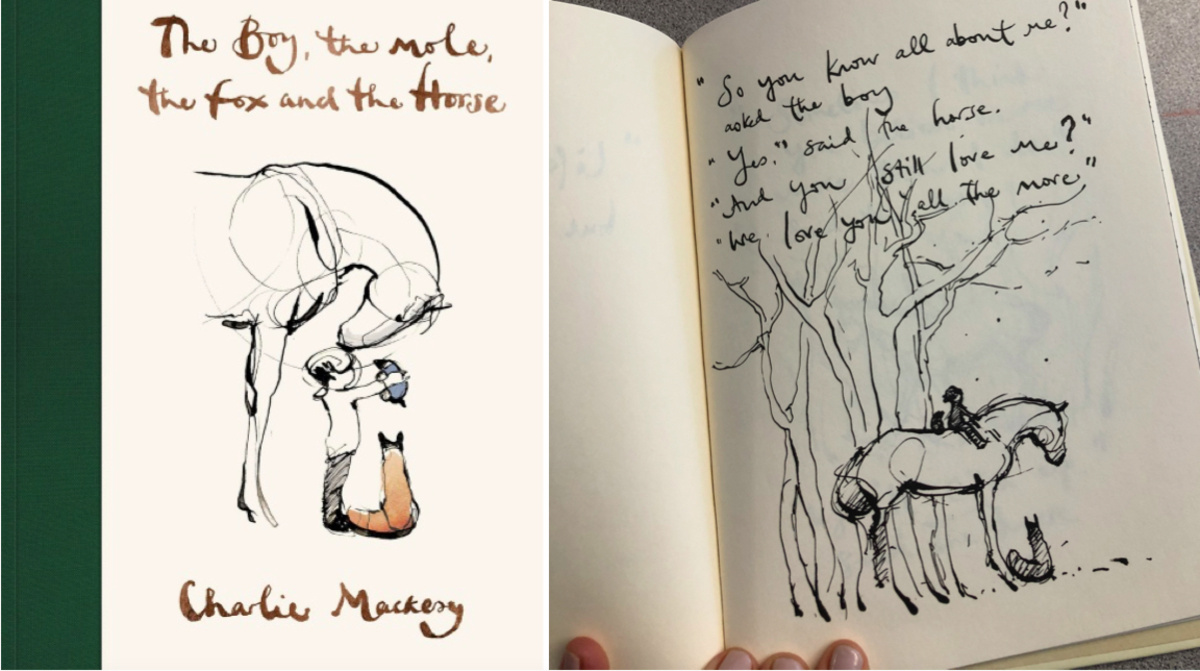 The Boy, the mole,
the fox and the Horse
Charlie Mackesy
"So you know all about me?"
asked the boy
"Yes," said the horse.
"And you still love me?"
"We love you all the more."